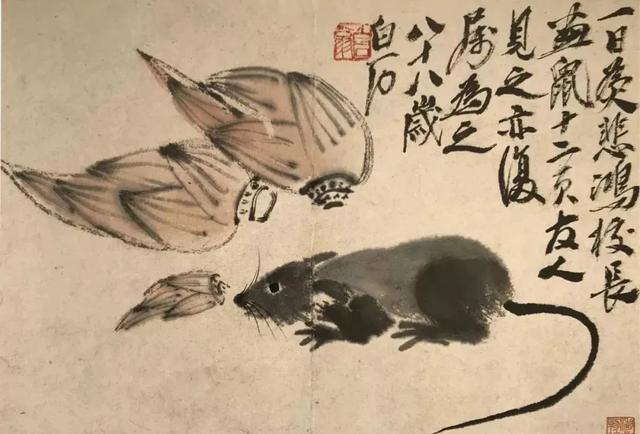 一日為悲鴻校長
畫鼠十二頁友人
見之亦復
属為之
八十八歲
白石